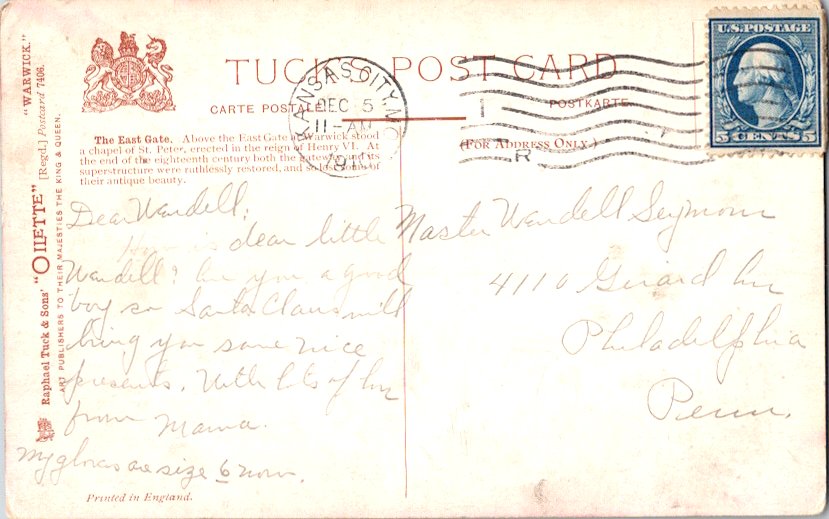 "WARWICK."
[Regd.] Postcard 7406.
Raphael Tuck & Sons' "OILETTE"
ART PUBLISHERS TO THEIR MAJESTIES THE KING & QUEEN.
TUCK'S POST CARD
CARTE POSTALE
POSTKARTE
(FOR ADDRESS ONLY.)
KANSAS CITY, MO
DEC 5
11-AM
1
R
U.S. POSTAGE
5 CENTS 5
The East Gate. Above the East Gate at Warwick stood
a chapel of St. Peter, erected in the reign of Henry VI. At
the end of the eighteenth century both the gateway and its
superstructure were ruthlessly restored, and so lost some of
their antique beauty.
Dear Wendell;
How is dear little
Wendell? Are you a good
boy so Santa Claus will
bring you some nice
presents. With lots of luv
from Mama.
My gloves are size 6 now.
Master Wendell Seymour
4110 Girard Av
Philadelphia
Penn.
Printed in England.